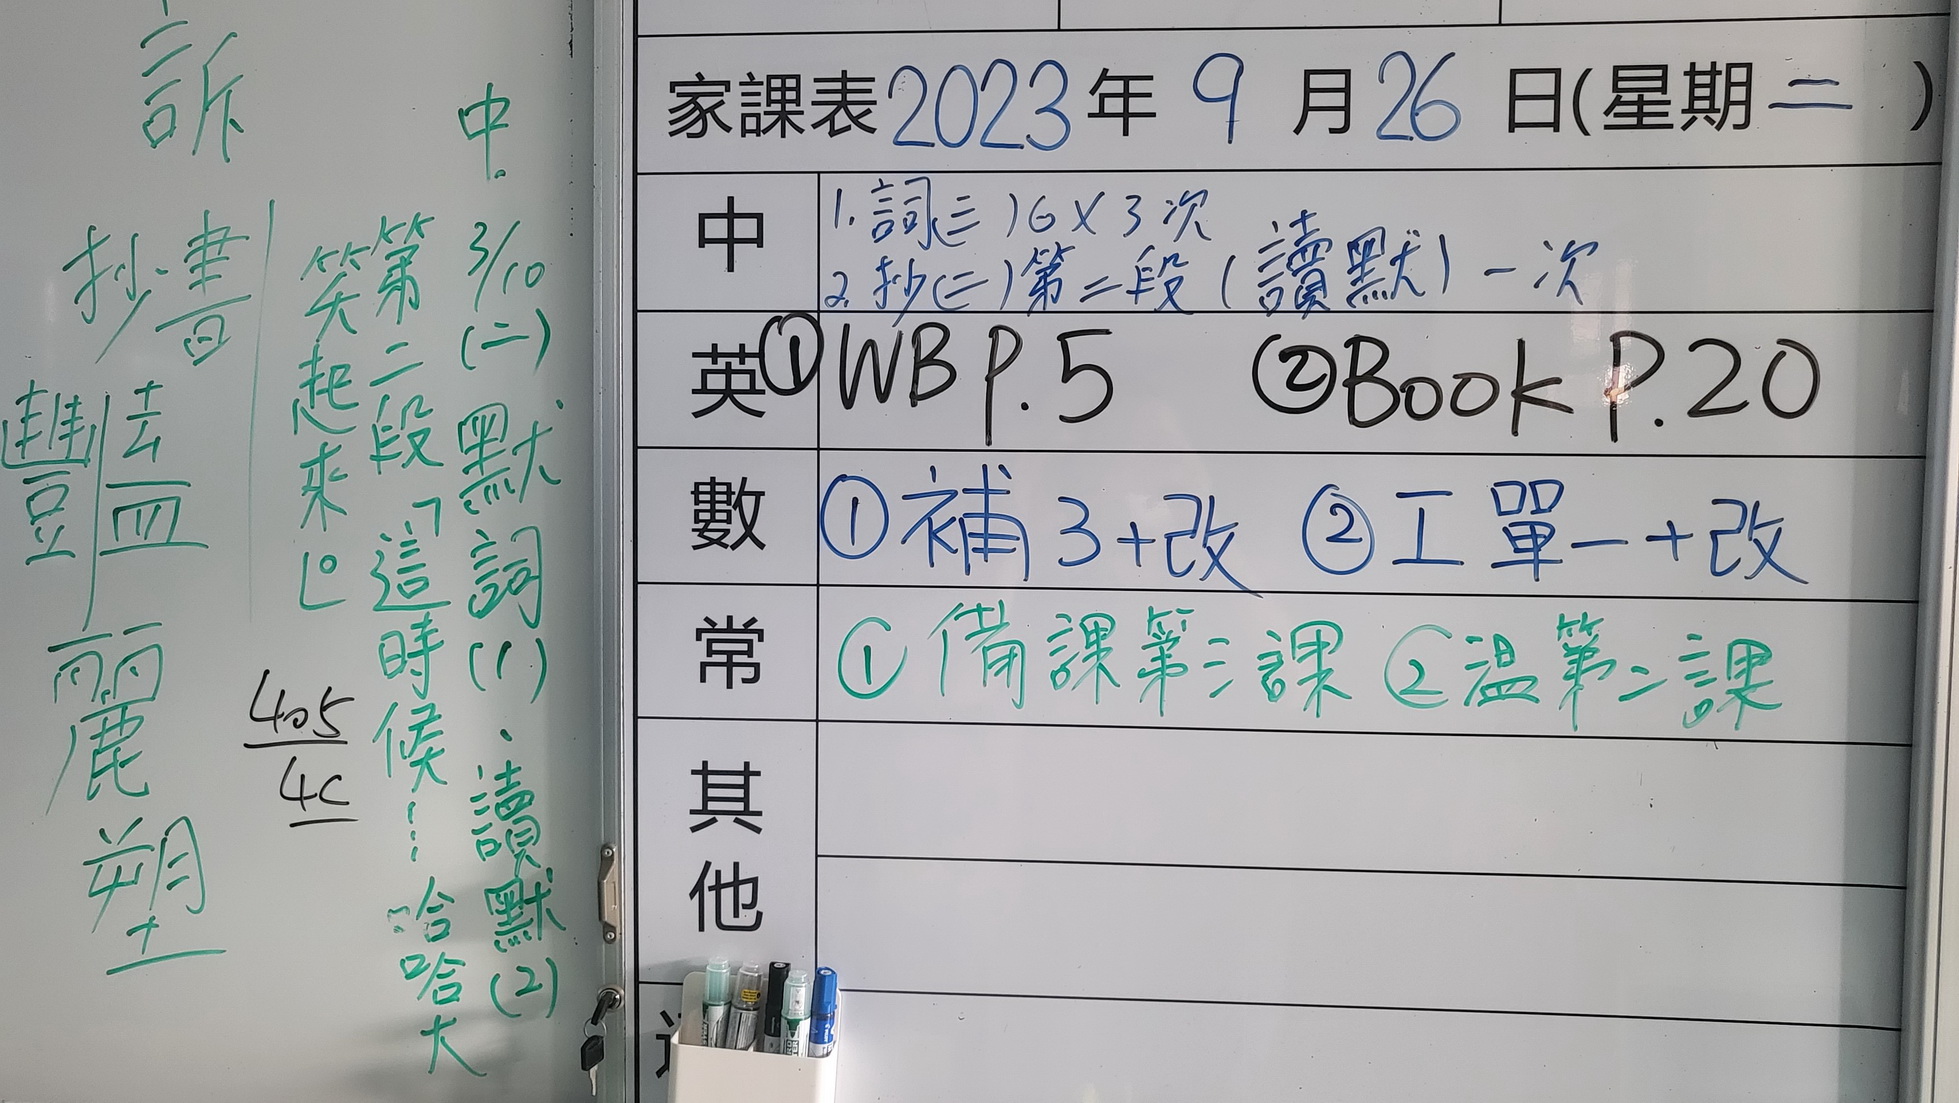 訴
抄書
豐盡
麗
塑
中.
3/10(二)默詞(1)、讀默(2)
第二段「這時候……哈哈大
笑起來」。
405
4C
家課表2023年9月26日(星期二)
中
1. 詞(三)6X3次
2. 抄(二)第二段(讀默)一次
英
①WB P.5 ②Book P.20
數
①補3+改 ②工單一+改
常
①備課第三課 ②溫第二課
其他